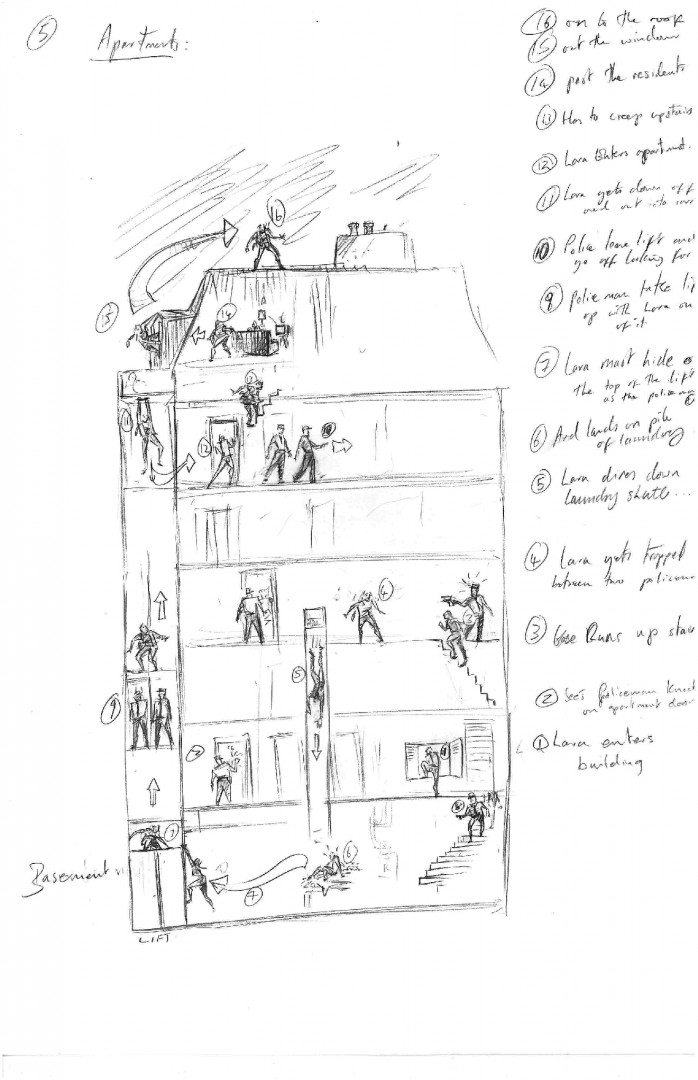 5
Apartments:
16 on to the roof
15 out the window
14 past the residents
13 Has to creep upstairs
12 Lara Enters apartment.
11 Lara gets down off
and out into
10 Police leave lift and
go off looking for
9 Police man take li
up with Lara on
of it.
7 Lara must hide
the top of the lift
as the
6 And lands on pile
of laundry
5 Lara dives down
laundry shute...
4 Lara gets trapped
between two policem
3 Runs up stair
2 Sees Policeman knoc
on apartment door
1 Lara enters
building
16
15
14
11
12
10
4
3
5
9
2
1
8
7
6
7
Basement
LIFT